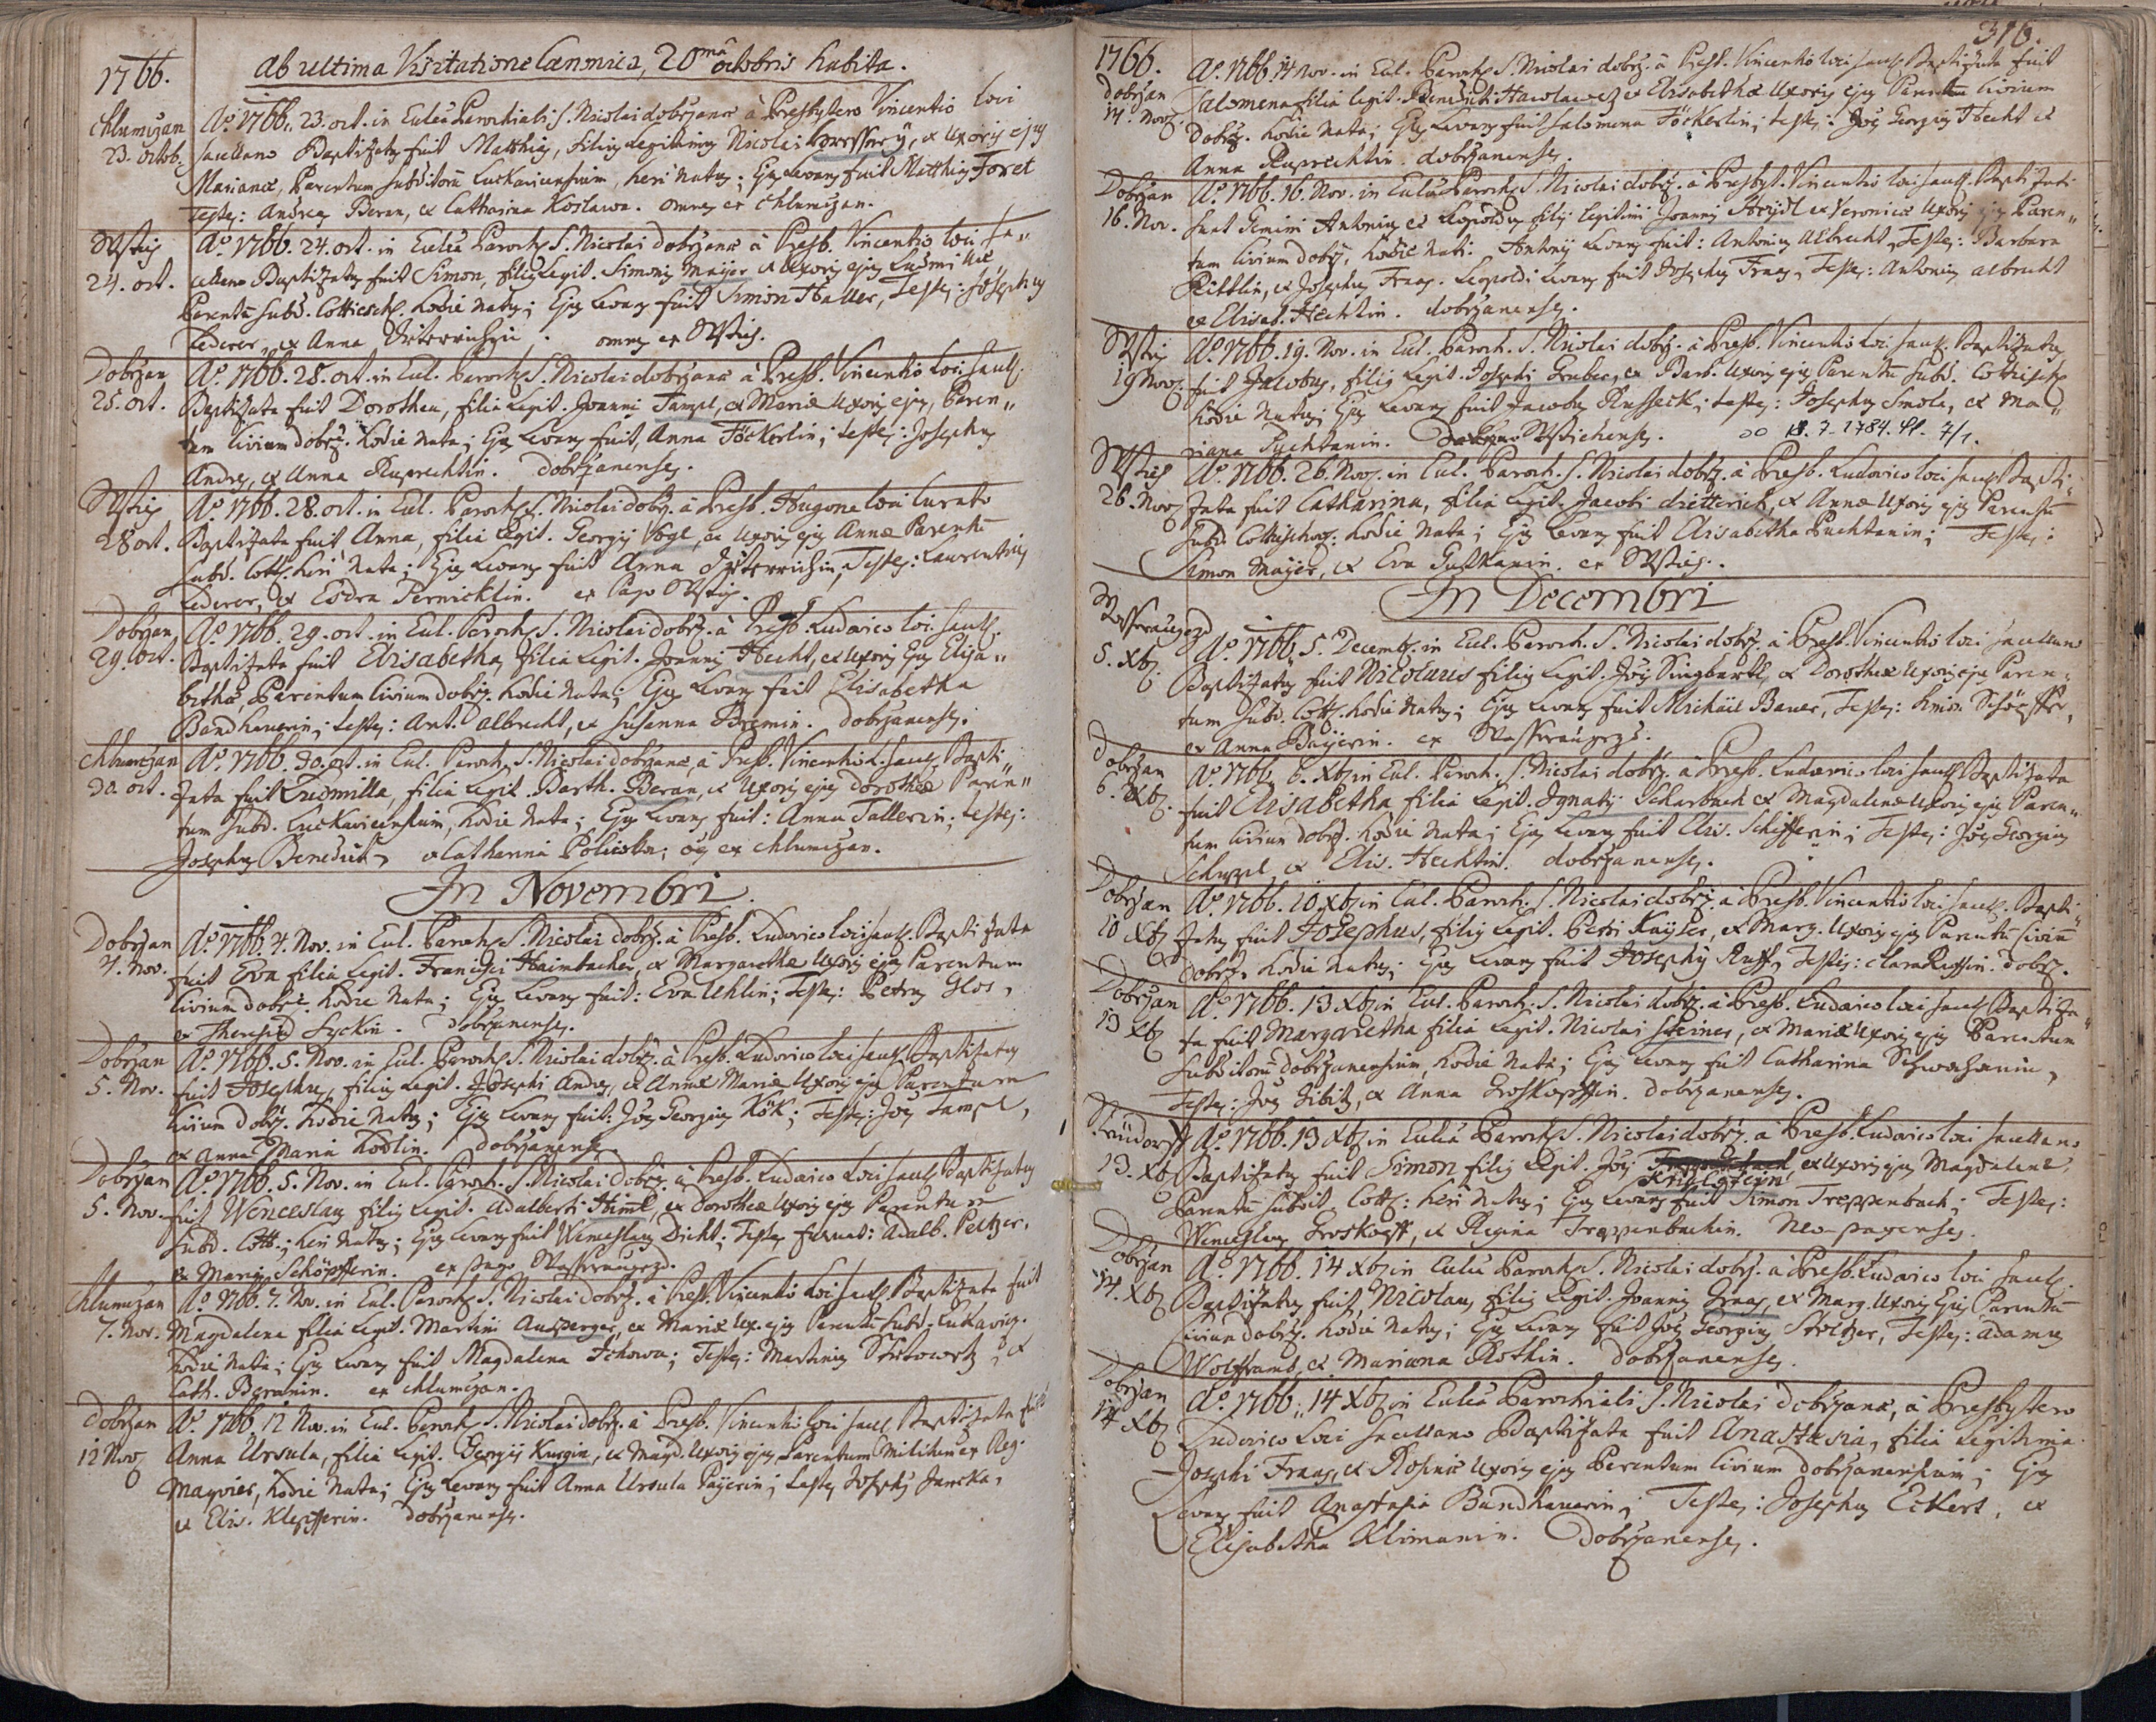 1766.
ab ultima Visitatione Canonica, 20mâ octobris habita.
Chlumczan
23. octob.
Aº. 1766. 23. oct. in Eccleâ Parochiali S. Nicolai dobrzanæ â Presbytero Vincentio Loci
sacellano Baptizatq fuit Matthiq, Filiq Legitimq Nicolai, & Uxoris ejq
Marianæ, Parentum subditorũ Luckavicensium, heri natq; Ejq Levanq fuit Matthiq Foret
Testes: Andreas Beran, & Catharina Koslawa. omnes ex Chlumczan.
24. oct.
Aº. 1766. 24. oct. in Eccleâ Parochq S. Nicolai dobrzanæ â Presb. Vincentio loci sa„
cellano Baptizatq fuit Simon, filiq Legit. Simonis Maÿer & Uxoris ejq Ludmillæ
Parentũ subd. Cottiesch. hodie natq; Ejq Levanq fuit Simon Haller, Testes: Josephq
Lederer, & Anna. omnes ex
Dobrzan
25. oct.
Aº. 1766. 25. oct. in Eccl. Parochq S. Nicolai dobrzanæ â Presb. Vincentio Loci sacell.
Baptizata fuit Dorothea, filia Legit. Joannis Tampl, & Mariæ Uxoris ejq, Paren„
tum Civium dobrz. hodie nata; Ejq Levanq fuit, Anna Föckerlin; testes: Josephq
Andres, & Anna Ruprechtin. Dobrzanenses.
28 oct.
Aº. 1766. 28. oct. in Eccl. Parochq S. Nicolai dobrz. â Presb. Hugone loci Curato
Baptizata fuit Anna, filia Legit. Georgij Vogl, & Uxoris ejq Annæ Parentũ
subd. Cott. heri nata; Ejq Levanq fuit Anna; Testes: Laurentiq
Lederer, & Eva Pernicklin. ex Pago
Dobrzan
29. oct.
Aº. 1766. 29. oct. in Eccl. Parochq S. Nicolai dobrz. â Presb. Ludovico loci sacell.
Baptizata fuit Elisabetha, filia Legit. Joannis Hecht, & Uxoris Ejq Elisa„
bethæ, Parentum Civium dobrz. hodie nata; Ejq Levanq fuit Elisabetha
Bandhauerin; testes: Ant. Albrecht, & Susanna. Dobrzanenses.
Chlumczan
30. oct.
Aº. 1766. 30. oct. in Eccl. Parochq S. Nicolai dobrzanæ, â Presb. Vincentio L. sacell. Bapti„
zata fuit Ludmilla, filia Legit. Barth. Beran, & Uxoris ejq Dorotheæ Paren„
tum subd. Luckavicensium, hodie nata; Ejq Levanq fuit: Anna Tallerin; testes:
Josephq Benedict, & Catharina; oes ex Chlumczan.
In Novembri.
Dobrzan
4. Nov.
Aº. 1766. 4. Nov. in Eccl. Parochq S. Nicolai dobrz. â Presb. Ludovico loci sacell. Baptizata
fuit Eva filia Legit. Francisci Haimbacher, & Margarethæ Uxoris ejq Parentum
Civium dobrz. hodie nata; Ejq Levanq fuit: Eva Uhlin; Testes: Petrq Glos,
& Theresia Lyckin. Dobrzanenses.
Dobrzan
5. Nov.
Aº. 1766. 5. Nov. in Eccl. Parochq S. Nicolai dobrz. â Presb. Ludovico loci sacell. Baptizatq
fuit Josephq, filiq Legit. Josephi Andres, & Annæ Mariæ Uxoris ejq Parentum
Civium dobrz. hodie natq; Ejq Levanq fuit: Joes Georgiq Kök; Testes: Joes Tampl,
& Anna Maria Kodlin. Dobrzanenses.
Dobrzan
5. Nov.
Aº. 1766. 5. Nov. in Eccl. Paroch. S. Nicolai dobrz. â Presb. Ludovico Loci sacell. Baptizatq
fuit Wenceslaq filiq Legit. Adalberti Himl, & Dorotheæ Uxoris ejq Parentum
subd. Cott.; heri natq; Ejq Levanq fuit Wenceslaq Dicht; Testes fuerunt: Adalb. Peltzer,
& Maria Schöpfferin. ex pago Wasseraugezd.
Chlumczan
7. Nov.
Aº. 1766. 7. Nov. in Eccl. Parochq S. Nicolai dobrz. â Presb. Vincentio Loci sacell. Baptizata fuit
Magdalena filia Legit. Martini Ausperger, & Mariæ Ux. ejq Parentũ subd. Lukavicz.
hodie nata; Ejq Levanq fuit Magdalena; Testes: Martinq, &
Cath. Beranin. ex Chlumczan.
Dobrzan
12 Nov.
Aº. 1766. 12 Nov. in Eccl. Parochq S. Nicolai dobrz. â Presb. Vincentio Loci sacell. Baptizata fuit
Anna Ursula, filia Legit. Georgij Kurgin, & Magd. Uxoris ejq, Parentum Militum ex Reg.
Mayvies, hodie nata; Ejq Levanq fuit Anna Ursula Paÿerin; testes Josephq Janeka,
& Elis. Klepfferin. Dobrzanenses.
316.
1766.
Dobrzan
14. Nov.
Aº. 1766. 14 Nov. in Eccl. Parochq S. Nicolai dobrz. â Presb. Vincentio Loci sacell. Baptizata fuit
Salomena filia legit. Benedicti Hawlawez & Elisabethæ Uxoris ejq Parentum Civium
Dobrz. hodie nata; Ejq Levanq fuit Salomena Föckerlin; testes: Joes Georgiq Hecht &
Anna Ruprechtin. Dobrzanenses.
Dobrzan
16. Nov.
Aº. 1766. 16. Nov. in Eccleâ Parochq S. Nicolai dobrz. â Presbyt. Vincentio loci sacell. Baptizati
sunt Gemini Antoniq & Leopoldq filij legitimi Joannis Heydl & Veronicæ Uxoris ejq Paren„
tum Civium dobrz. hodie nati. Antonij Levanq fuit: Antoniq Albrecht, Testes: Barbara
Rittlin, & Josephq Fraas. Leopoldi Levanq fuit Josephq Fraas, Testes: Antoniq Albrecht
& Elisab. Hechtin. Dobrzanenses.
19 Nov.
Aº. 1766. 19. Nov. in Eccl. Paroch. S. Nicolai dobrz. â Presb. Vincentio Loci sacell. Baptizatq
fuit Jacobq, filiq Legit. Josephi Gruber, & Barb. Uxoris ejq Parentũ subd.
hodie natq; Ejq Levanq fuit Jacobq Russeck; testes: Josephq Smola, & Ma„
riana. 18. 7. 1784.
26. Nov.
Aº. 1766. 26. Nov. in Eccl. Paroch. S. Nicolai dobrz. â Presb. Ludovico loci sacell. Bapti„
zata fuit Catharina, filia Legit. Jacobi Dietterich, & Annæ Uxoris ejq Parentũ
subd. hodie nata; Ejq Levanq fuit Elisabetha Puchtanin; Testes:
Simon Maÿer, & Eva. ex
In Decembri
Wasseraugezd
5. Xb.
Aº. 1766. 5. Decemb. in Eccl. Paroch. S. Nicolai dobrz. â Presb. Vincentio loci sacellano
Baptizatq fuit Nicolaus filiq Legit. Jois Singbartl, & Dorotheæ Uxoris ejq Paren„
tum subd. Cott. hodie natq; Ejq Levanq fuit Michäel Bauer, Testes: Simon,
& Anna Baÿerin. ex Wasseraugezd.
Dobrzan
6. Xb.
Aº. 1766. 6. Xb. in Eccl. Paroch. S. Nicolai dobrz. â Presb. Ludovico loci sacell. Baptizata
fuit Elisabetha filia Legit. Ignatij Scharbach & Magdalenæ Uxoris ejq Paren„
tum Civium dobrz. hodie nata; Ejq Levanq fuit Elis. Schifferin; Testes: Joes Georgiq
& Elis. Hechtin. Dobrzanenses.
Dobrzan
10 Xb.
Aº. 1766. 10 Xb. in Eccl. Paroch. S. Nicolai dobrz. â Presb. Vincentio loci sacell. Bapti„
zatq fuit Josephus, filiq Legit. Petri Kaÿser, & Marg. Uxoris ejq Parentũ Civiũ
Dobrz. hodie natq; Ejq Levanq fuit Josephq Russ, Testis: Clara. Dobrz.
Dobrzan
13 Xb.
Aº. 1766. 13 Xb. in Eccl. Paroch. S. Nicolai dobrz. â Presb. Ludovico loci sacell. Baptiza„
ta fuit Margaretha filia Legit. Nicolai Steiner, & Mariæ Uxoris ejq Parentum
subditorũ dobrzanensium, hodie nata; Ejq Levanq fuit Catharina,
Testes: Joes, & Anna Groskopffin. Dobrzanenses.
13. Xb.
Aº. 1766. 13 Xb. in Eccleâ Parochq S. Nicolai dobrz. â Presb. Ludovico loci sacellano
Baptizatq fuit Simon filiq Legit. Jois & Uxoris ejq Magdalenæ,
Parentũ subdit. Cott: heri natq; Ejq Levanq fuit Simon Treppenbach; Testes:
Wenceslaq Groskopff, & Regina Treppenbachin. Neo-pagenses.
Dobrzan
14. Xb.
Aº. 1766. 14 Xb. in Eccleâ Parochq S. Nicolai dobrz. â Presb. Ludovico loci sacell.
Baptizatq fuit Nicolaus, filiq Legit. Joannis Fraas, & Marg. Uxoris Ejq Parentũ
Civium dobrz. hodie natq; Ejq Levanq fuit Joes Georgiq, Testes: Adamq
Wolfframb, & Mariana Rothin. Dobrzanenses.
Dobrzan
14 Xb.
Aº. 1766. 14 Xb. in Eccleâ Parochiali S. Nicolai Dobrzanæ, â Presbytero
Ludovico Loci sacellano Baptizata fuit Anastasia, filia Legitima
Josephi Fraas, & Rosinæ Uxoris ejq Parentum Civium Dobrzanensium; Ejq
Levanq fuit Anastasia Bandhauerin; Testes: Josephq Eckert, &
Elisabetha Klimanin. Dobrzanenses.